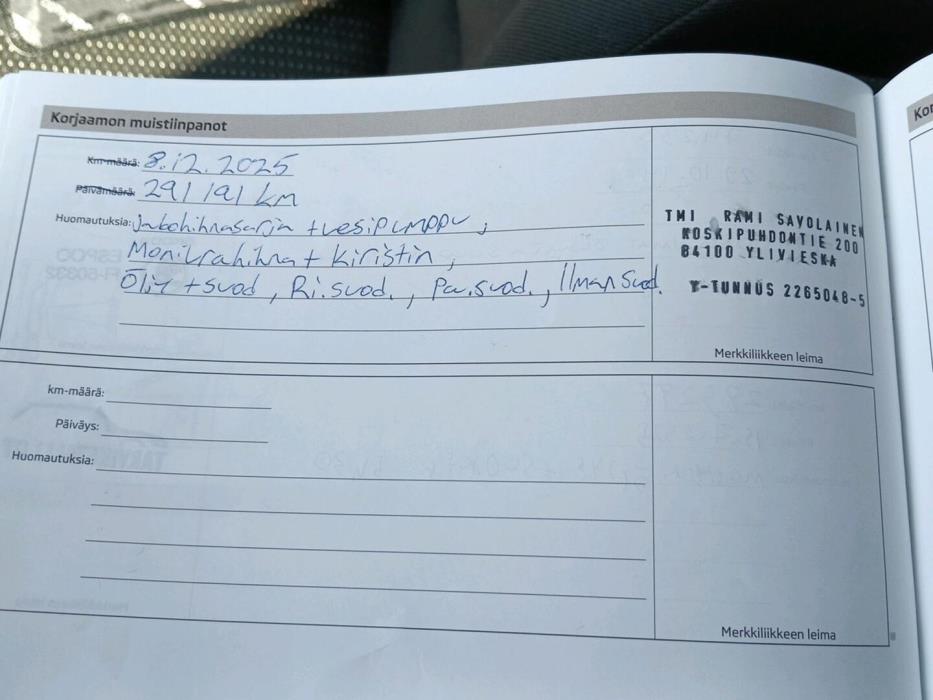 Korjaamon muistiinpanot
Km-määrä: 8.12.2025
Päivämäärä: 291191 km
Huomautuksia: Jakohihnasarja + vesipumppu,
Monikrahihna + Kiristin,
Öljyt + suod, Ri.suod., Pa.suod., Ilman Suod.
TMI RAMI SAVOLAINEN
KOSKIPUHDONTIE 200
84100 YLIVIESKA
Y-TUNNUS 2265048-5
Merkkiliikkeen leima
km-määrä:
Päiväys:
Huomautuksia:
Merkkiliikkeen leima